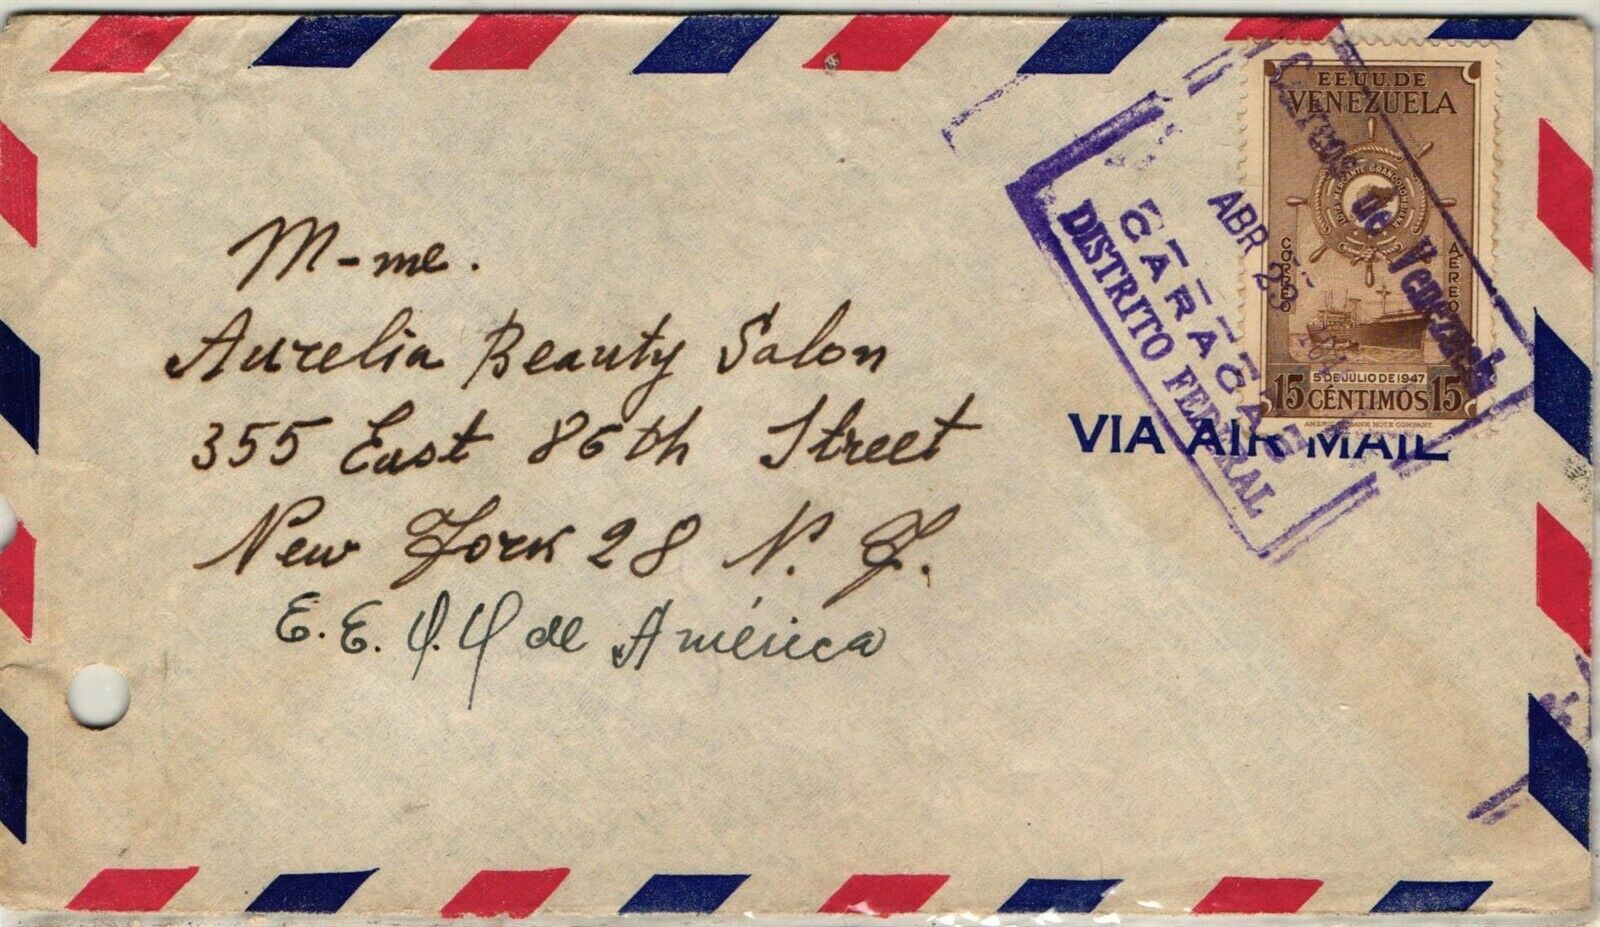 M-me.
Aurelia Beauty Salon
355 East 86th Street
New York 28 N. Y.
E.E. U.U de América
VIA AIR MAIL
EE.UU.DE
VENEZUELA
FLOTA MERCANTE GRANCOLOMBIANA
CORREO
AEREO
5 DE JULIO DE 1947
15 CÉNTIMOS 15
AMERICAN BANK NOTE COMPANY
Correos de Venezuela
ABR 23
CARACAS
DISTRITO FEDERAL